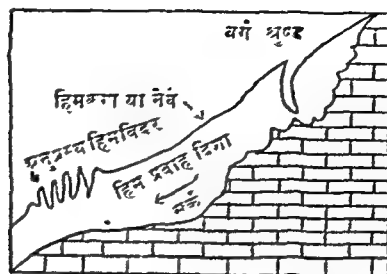 बर्ग श्रुण्ड
हिमकण या नेवे
अनुप्रस्थ हिमविदर
हिम प्रवाह दिशा
बर्फ